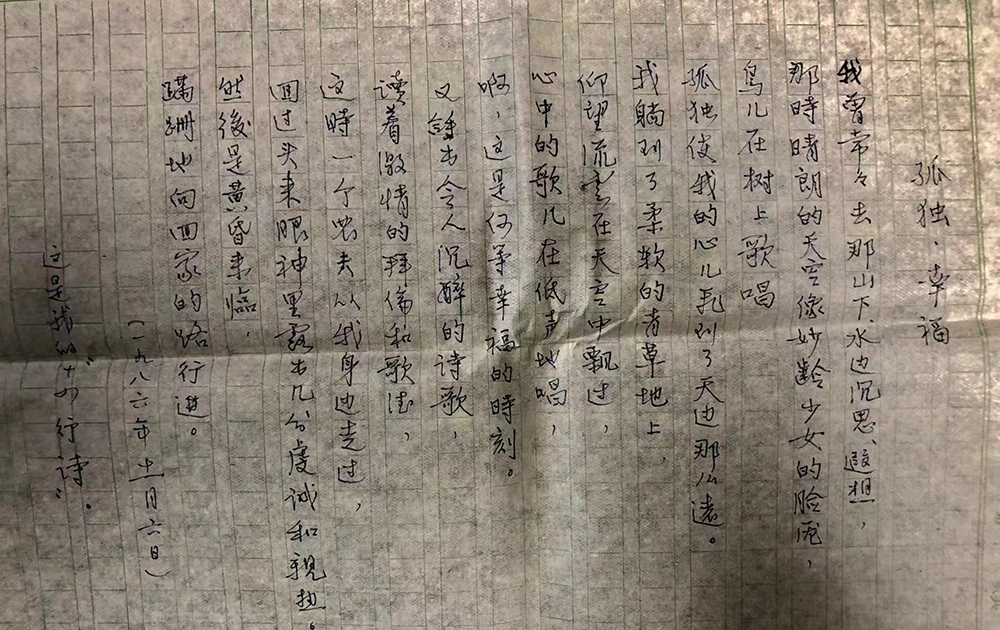 孤独·幸福
我曾常々去那山下、水边沉思、遐想，
那時晴朗的天空像妙齡少女的脸庞，
鸟儿在树上歌唱
孤独使我的心儿飞到了天边那么遠。
我躺到了柔软的青草地上，
仰望流云在天空中飘过，
心中的歌儿在低声地唱，
啊，这是何等幸福的時刻。
又読出令人沉醉的诗歌，
读着激情的拜倫和歌德，
这時一个農夫从我身边走过，
回过头来眼神里露出几分虔诚和親热。
然後是黄昏来臨，
蹒跚地向回家的路行进。
（一九八六年十一月六日）
这是我的“十四行诗”。